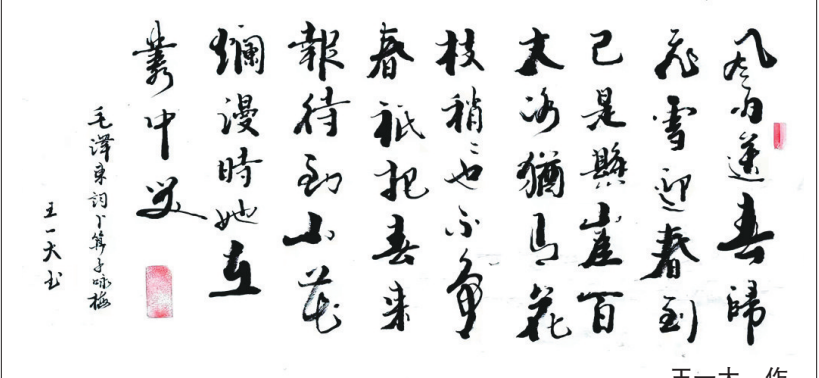 風雨送春歸
飛雪迎春到
已是懸崖百
丈冰猶有花
枝稍〻也不爭
春祇把春來
報待到山花
爛漫時她在
叢中笑
毛澤東詞卜算子咏梅
王一大书
王一大 作